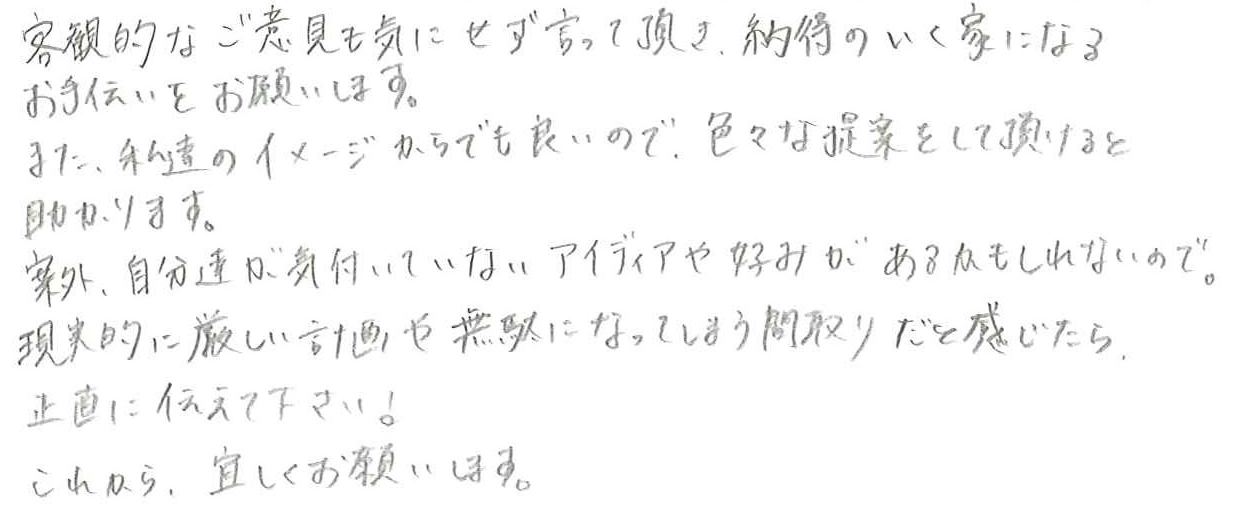 客観的なご意見も気にせず言って頂き、納得のいく家になる
お手伝いをお願いします。
また、私達のイメージからでも良いので、色々な提案をして頂けると
助かります。
案外、自分達が気付いていないアイディアや好みがあるかもしれないので。
現実的に厳しい計画や無駄になってしまう間取りだと感じたら、
正直に伝えて下さい!
これから、宜しくお願いします。